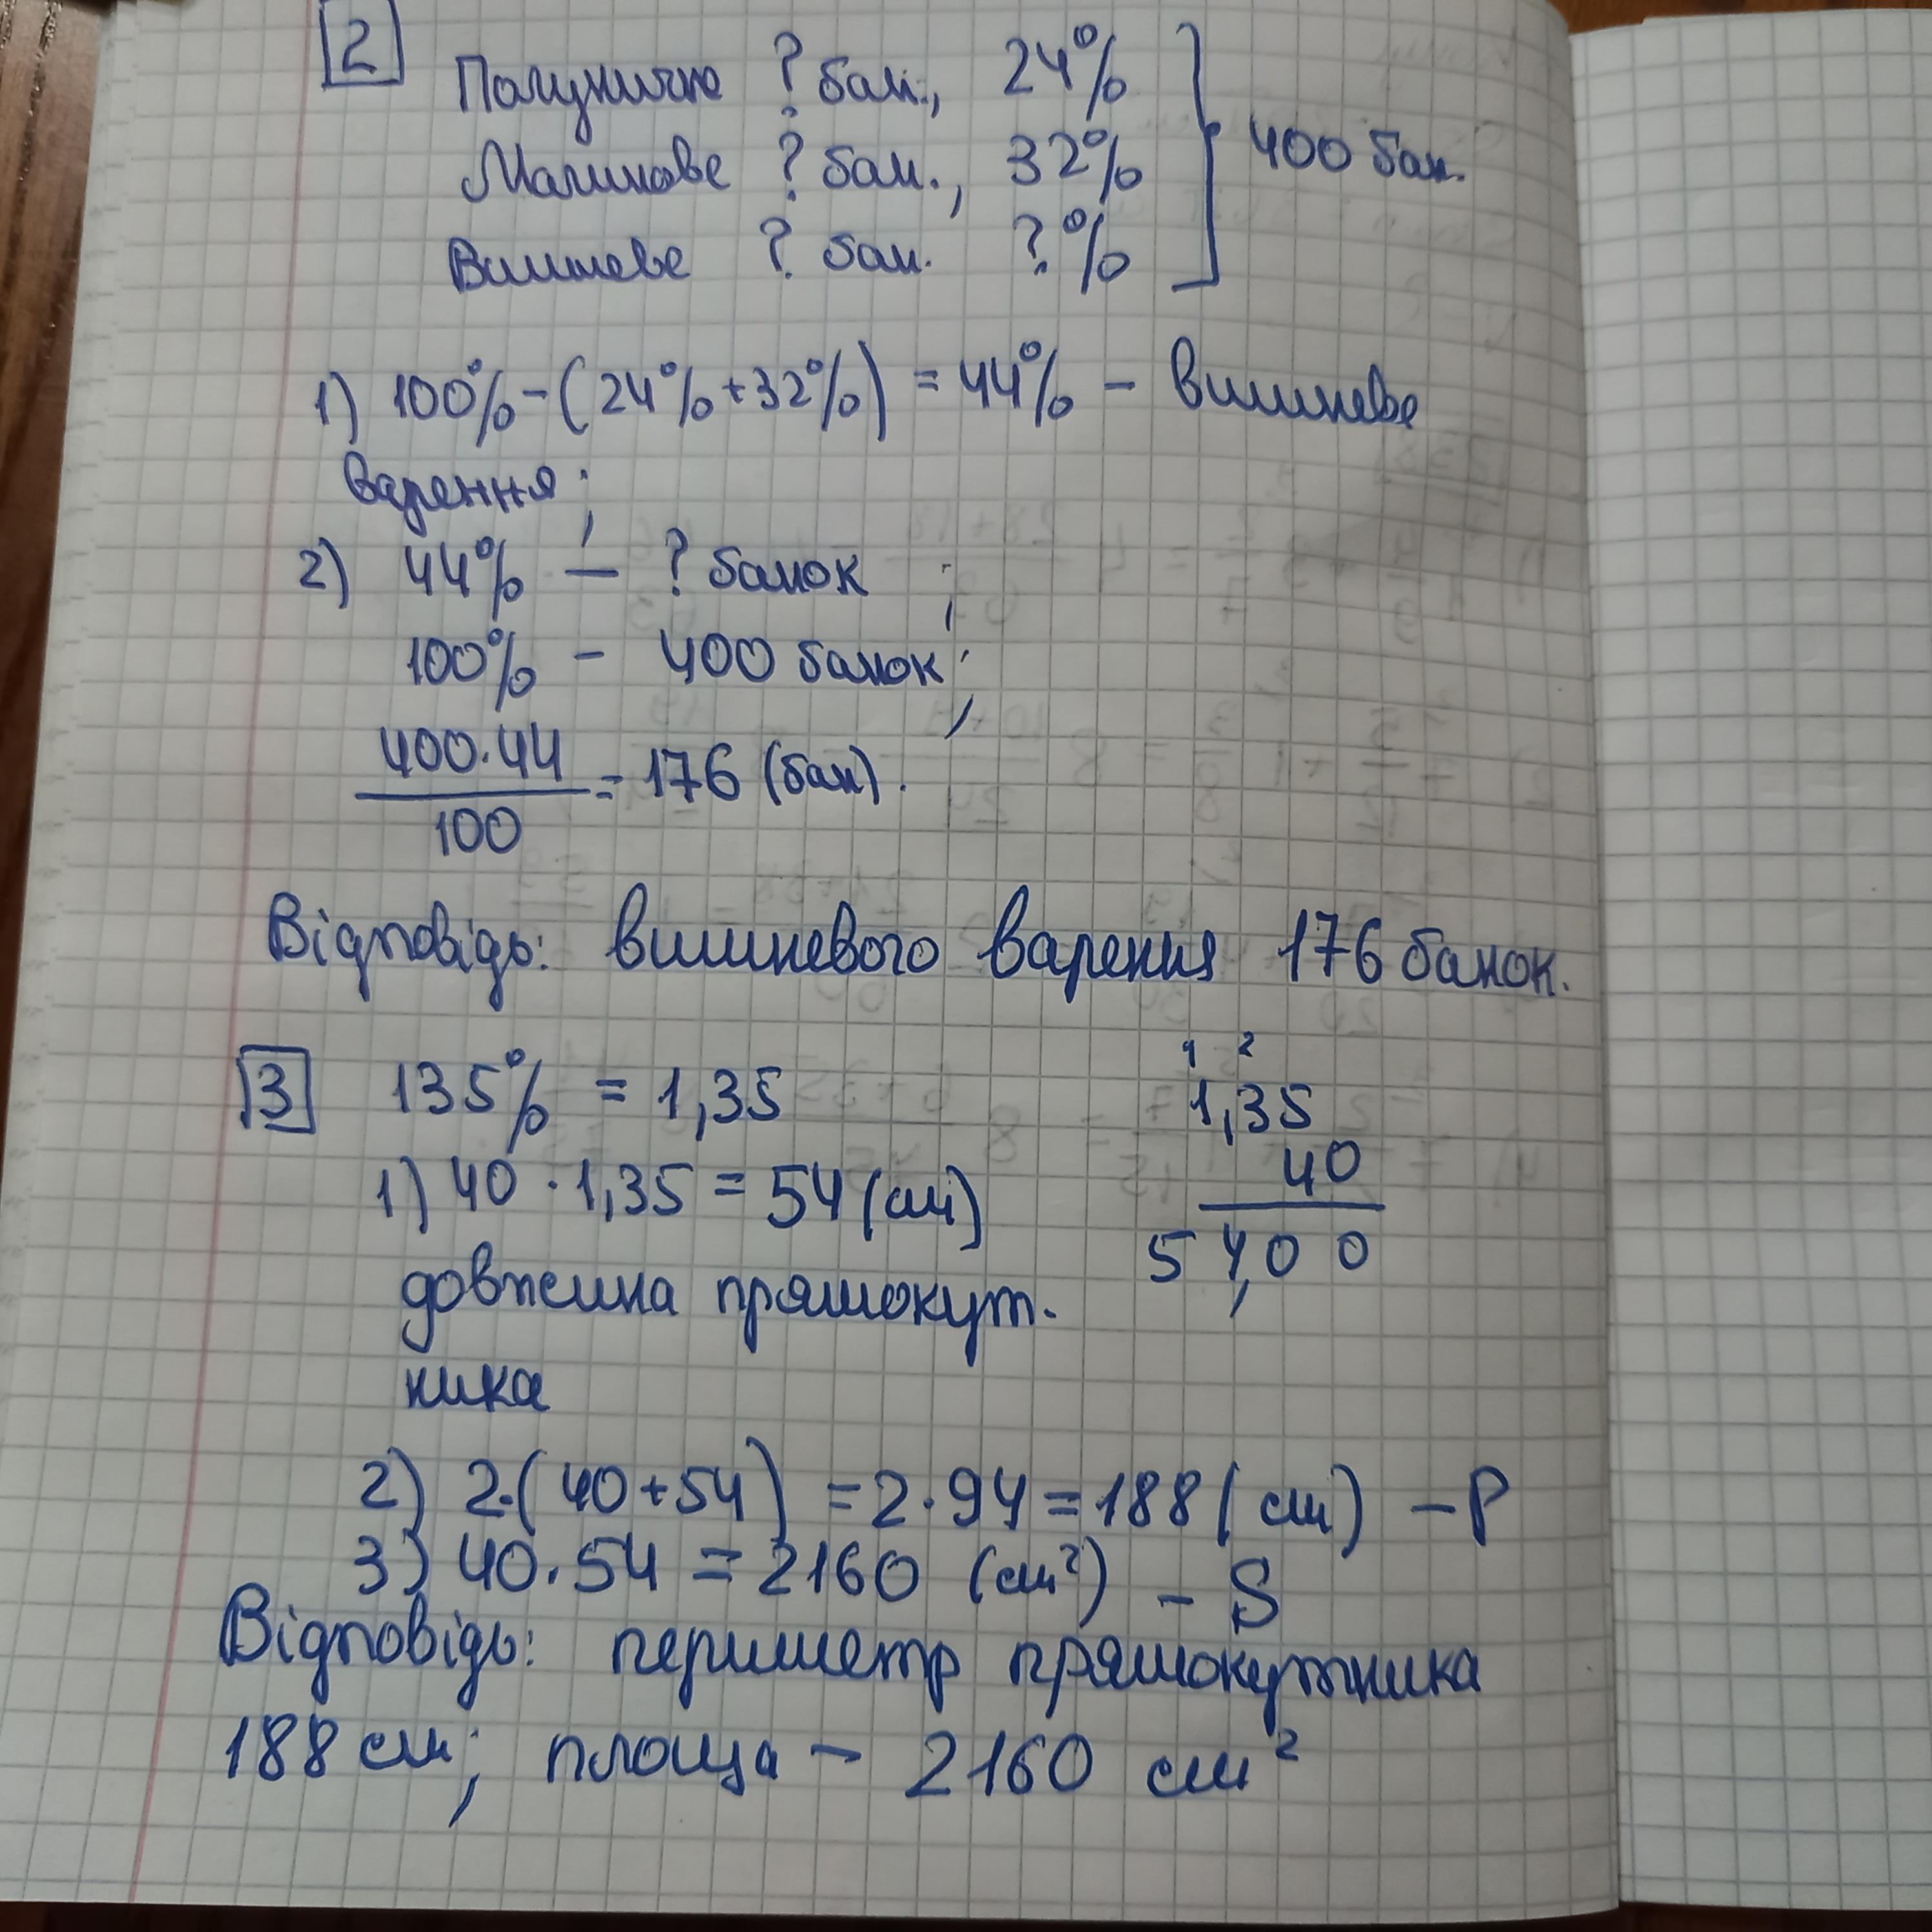 2
Полуничне ? бан., 24% 
Малинове ? бан., 32% 400 бан.
Вишневе ? бан. ?%
1) 100% - (24% + 32%) = 44% - вишневе
варення;
2) 44% — ? банок ;
100% - 400 банок;
400·44
100
= 176 (бан).
Відповідь: вишневого варення 176 банок.
3 135% = 1,35
1) 40 · 1,35 = 54 (см)
довжина прямокут-
ника
1 2
1,35
40
54,00
2) 2·(40+54) = 2·94 = 188 (см) - P
3) 40·54 = 2160 (см²) - S
Відповідь: периметр прямокутника
188 см; площа - 2160 см²